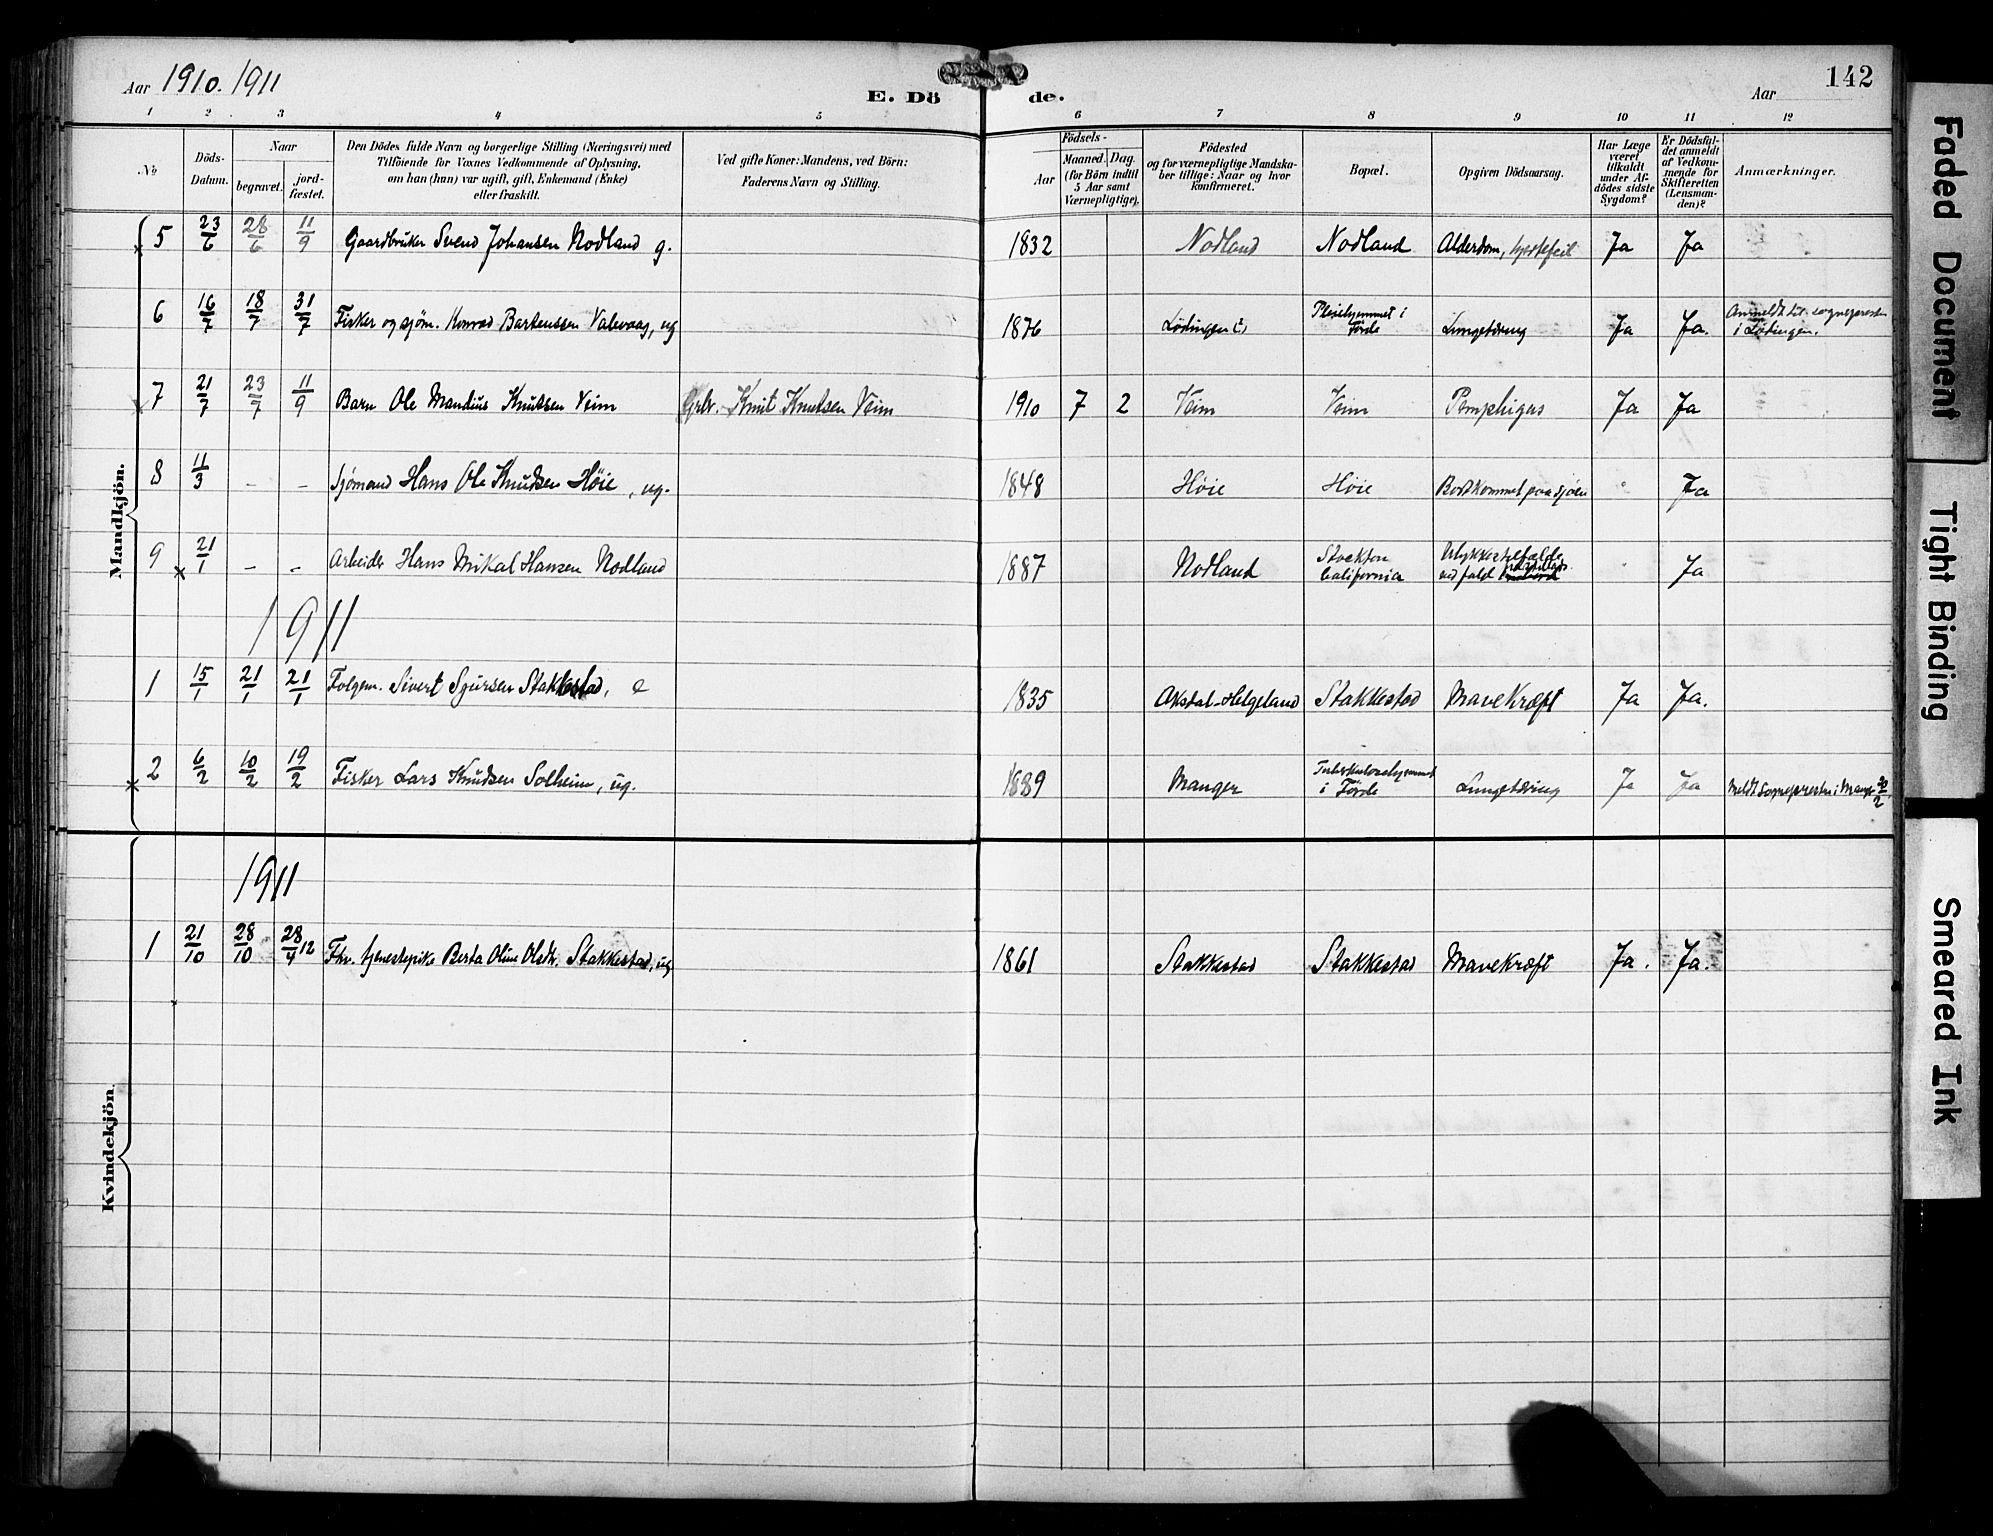 Aar 1910. 1911
E. Döde.
Aar
142
1 2 3 4 5 6 7 8 9 10 11 12
No
Döds-Datum.
Naar
begravet.
jord-fæstet.
Den Dödes fulde Navn og borgerlige Stilling (Næringsvei) med
Tilföiende for Voxnes Vedkommende af Oplysning,
om han (hun) var ugift, gift, Enkemand (Enke)
eller fraskilt.
Ved gifte Koner: Mandens, ved Börn:
Faderens Navn og Stilling.
Födsels-
Aar
Maaned. Dag.
(for Börn indtil
5 Aar samt
Værnepligtige).
Födested
og for værnepligtige Mandska-
ber tillige: Naar og hvor
konfirmeret.
Bopæl.
Opgiven Dödsaarsag.
Har Læge
været
tilkaldt
under Af-
dödes sidste
Sygdom?
Er Dödsfal-
det anmeldt
af Vedkom-
mende for
Skifteretten
(Lensman-
den)?
Anmærkninger.
Mandkjön.
5 23/6 28/6 11/9 Gaardbruker Svend Johansen Nodland g. 1832 Nodland Nodland Alderdom, hjertefeil Ja Ja
6 16/7 18/7 31/7 Fisker og sjøm. Konrad Bartenssen Valevaag, ug 1876 Lødingen (?) Pleiehjemmet i Førde Lungetæring Ja Ja. Anmeldt til sognepresten i Lødingen.
7 21/7 23/7 11/9 Barn Ole Mandius Knutsen Veim Grbr. Knut Knutsen Veim 1910 7 2 Veim Veim Pemphigus Ja Ja
8 11/3 – – Sjømand Hans Ole Knudsen Høie, ug. 1848 Høie Høie Bortkommet paa sjøen " Ja
9 21/1 – – Arbeider Hans Mikal Hansen Nodland 1887 Nodland Stockton California Ulykkestilfælde ved fald Ja
1911
1 15/1 21/1 21/1 Folgem. Sivert Sjursen Stakkestad, e 1835 Aksdal-Helgeland Stakkestad Mavekræft Ja Ja.
2 6/2 10/2 19/2 Fisker Lars Knudsen Solheim, ug. 1889 Manger Tuberkulosehjemmet i Førde Lungetæring Ja Ja Meldt Sognepresten i Manger /2
Kvindekjön.
1911
1 21/10 28/10 28/4 12 Fhv. tjenestepike Berta Oline Olsdtr. Stakkestad, ug 1861 Stakkestad Stakkestad Mavekræft Ja. Ja.
Faded Document
Tight Binding
Smeared Ink